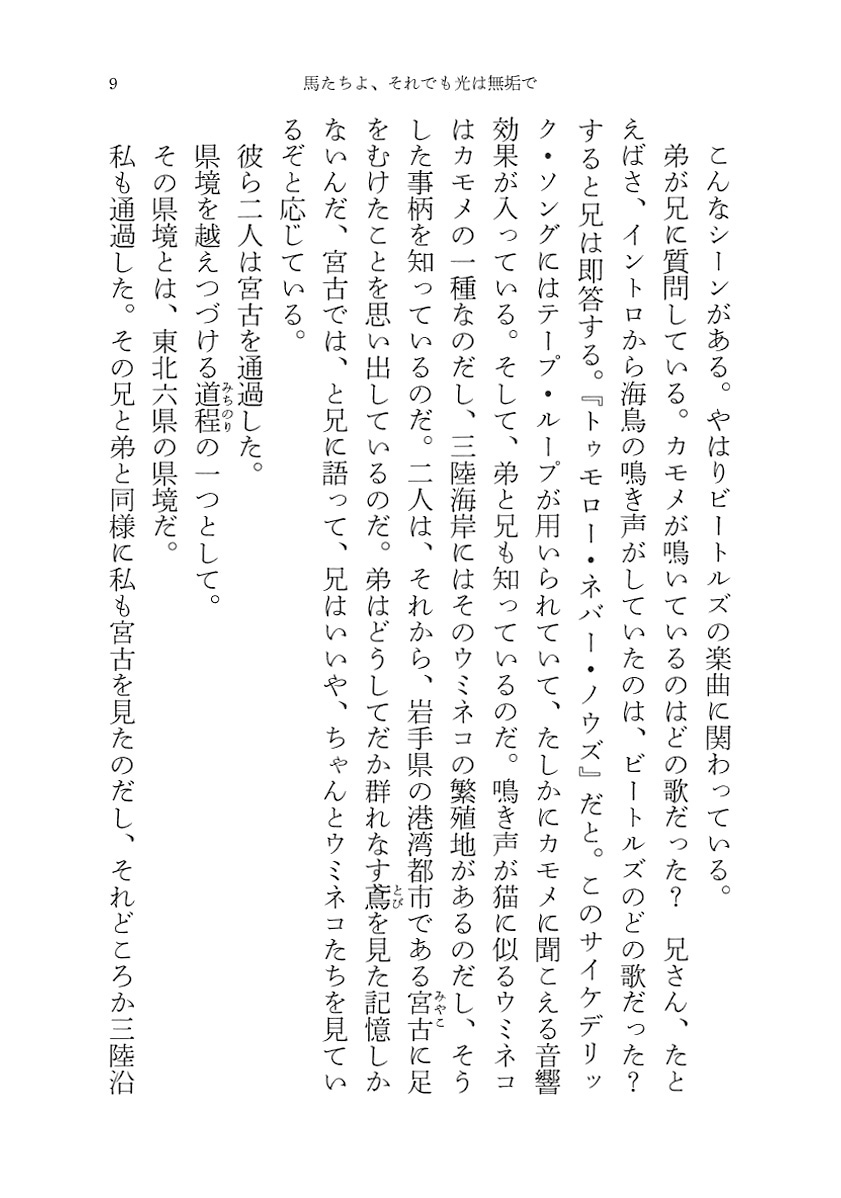 9
馬たちよ、それでも光は無垢で
こんなシーンがある。やはりビートルズの楽曲に関わっている。
弟が兄に質問している。カモメが鳴いているのはどの歌だった？　兄さん、たと
えばさ、イントロから海鳥の鳴き声がしていたのは、ビートルズのどの歌だった？
すると兄は即答する。『トゥモロー・ネバー・ノウズ』だと。このサイケデリッ
ク・ソングにはテープ・ループが用いられていて、たしかにカモメに聞こえる音響
効果が入っている。そして、弟と兄も知っているのだ。鳴き声が猫に似るウミネコ
はカモメの一種なのだし、三陸海岸にはそのウミネコの繁殖地があるのだし、そう
した事柄を知っているのだ。二人は、それから、岩手県の港湾都市である宮古に足
みやこ
をむけたことを思い出しているのだ。弟はどうしてだか群れなす鳶を見た記憶しか
とび
ないんだ、宮古では、と兄に語って、兄はいいや、ちゃんとウミネコたちを見てい
るぞと応じている。
彼ら二人は宮古を通過した。
県境を越えつづける道程の一つとして。
みちのり
その県境とは、東北六県の県境だ。
私も通過した。その兄と弟と同様に私も宮古を見たのだし、それどころか三陸沿